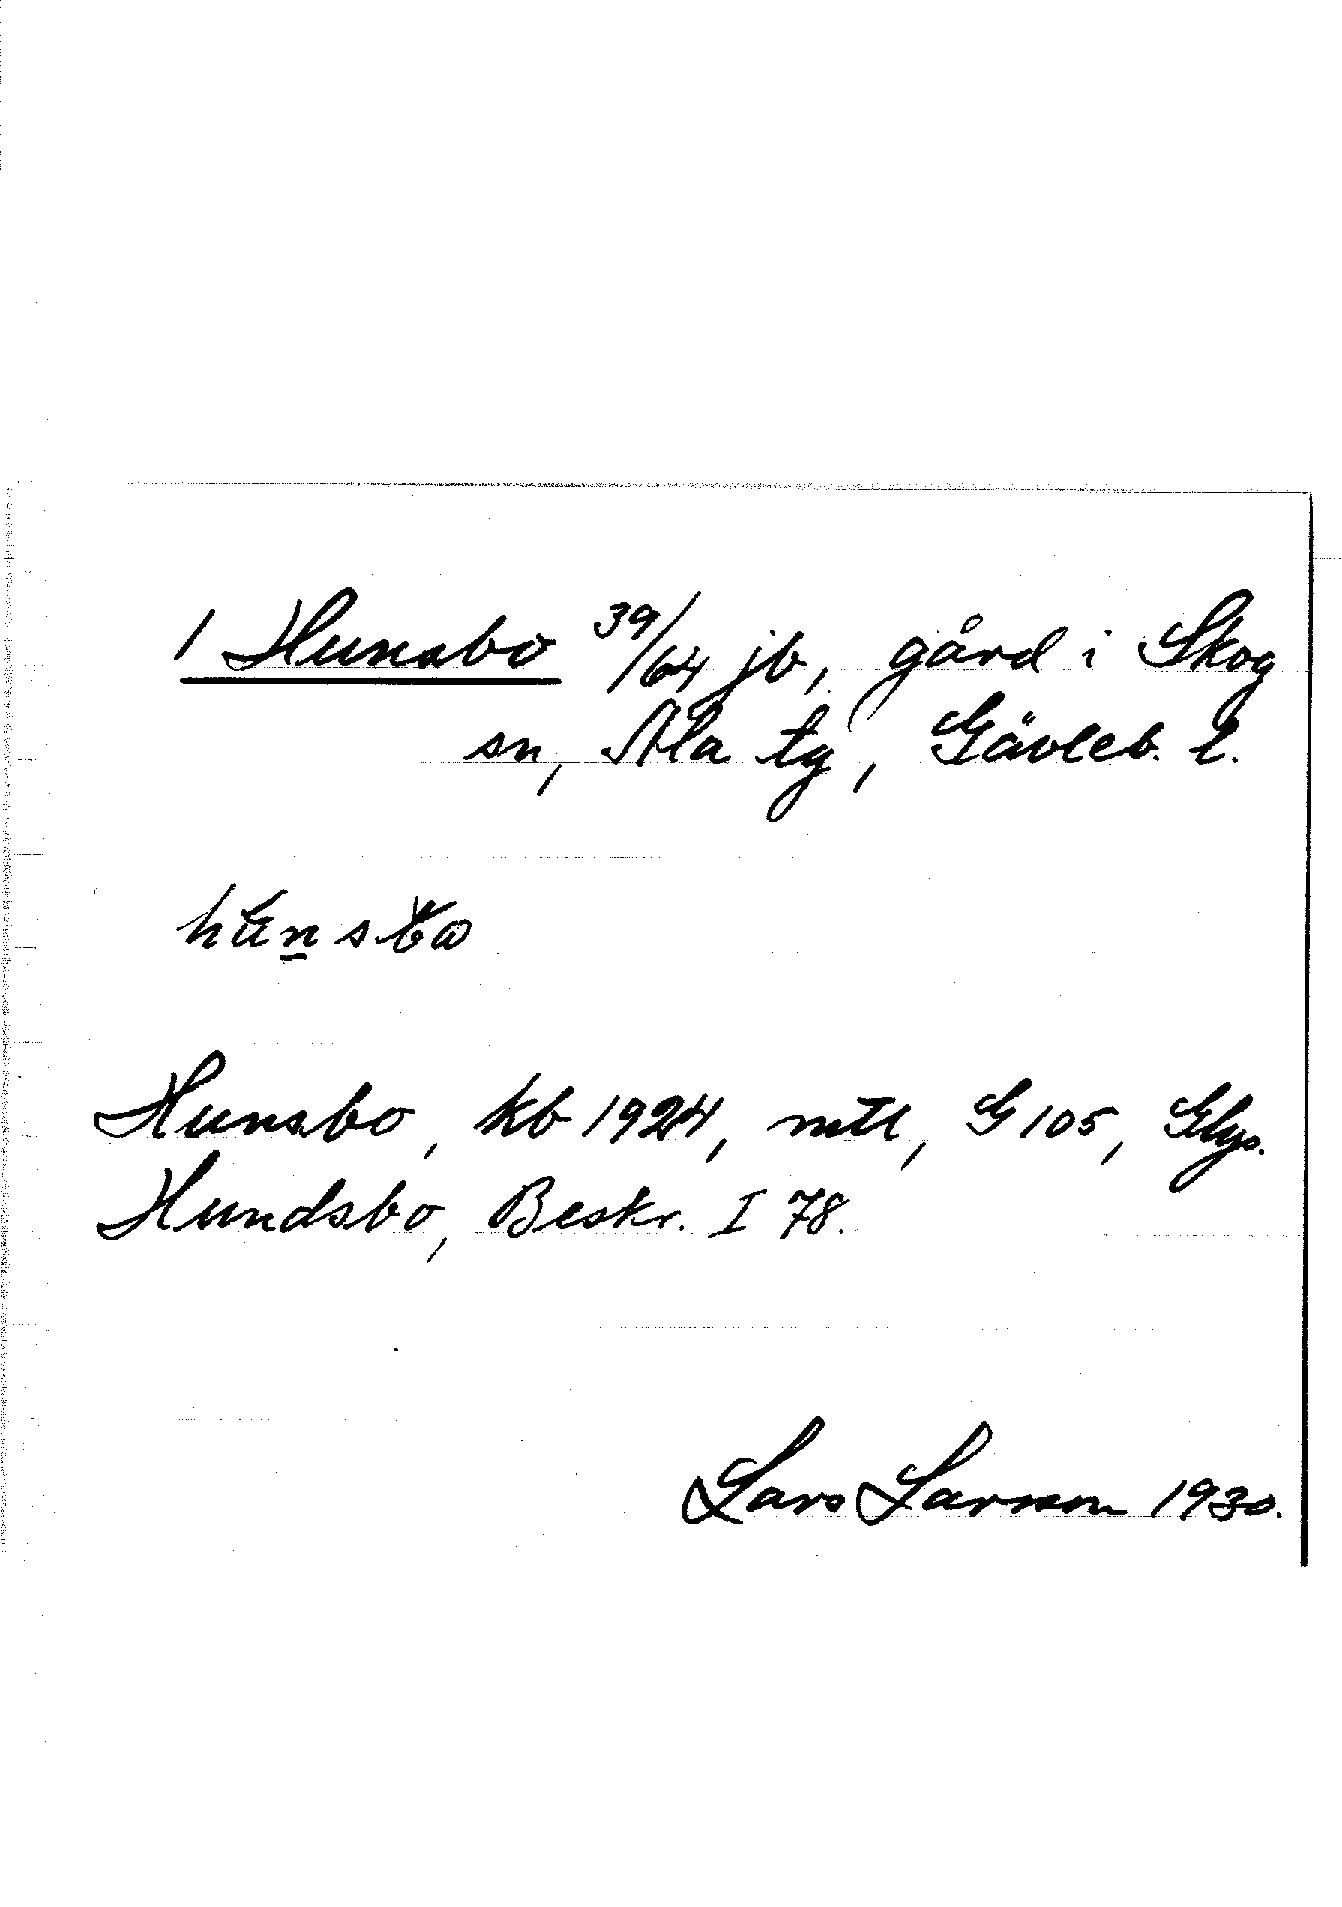 1 Hunsbo 39/64 jb, gård i Skog
sn, Ala tg, Gävleb. l.
Hunsbo, kb 1924, mtl, G 105, Glys.
Hundsbo, Beskr. I 78.
Lars Larsson 1930.